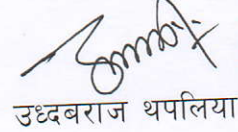 उध्दबराज थपलिया